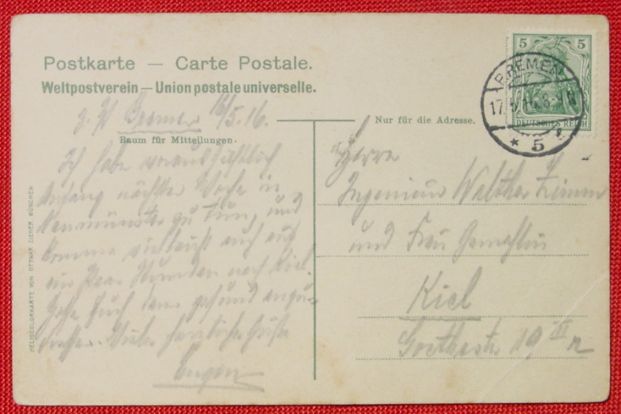 Postkarte — Carte Postale.
Weltpostverein — Union postale universelle.
z. Zt. Bremen 16/5.16.
Raum für Mitteilungen.
Nur für die Adresse.
Ich habe voraussichtlich
Anfang nächster Woche in
Neumünster zu tun, und
komme vielleicht auch auf
ein Paar Stunden nach Kiel.
Hoffe Euch dann gesund anzu-
treffen. Viele herzliche Grüße
Eugen
Herrn
Ingenieur Walther
und Frau Gemahlin
Kiel
Goethestr 19 III r
5 5
DEUTSCHES REICH
BREMEN
17.5.
* 5